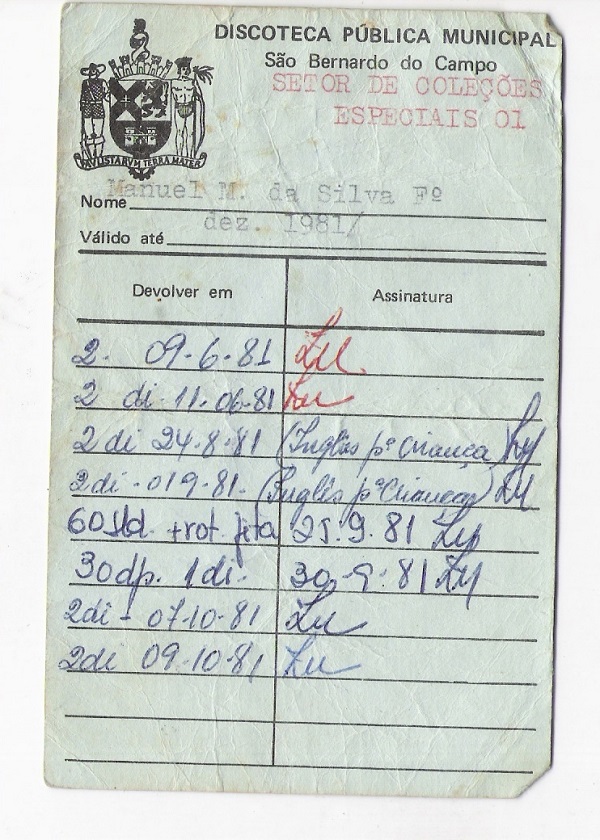 DISCOTECA PÚBLICA MUNICIPAL
São Bernardo do Campo
SETOR DE COLEÇÕES
ESPECIAIS 01
PAVLISTARVM TERRA MATER
Nome Manuel M. da Silva Fº
Válido até dez. 1981/
Devolver em Assinatura
2. 09-6-81 Lu
2 di 11-06-81 Lu
2 di 24-8-81 (Inglês pª Criança) Lu
2di - 019-81- (Inglês pª Crianças) Lu
60sld. + rot. fita 25.9.81 Lu
30dp. 1di. 30-9-81 Lu
2di - 07-10-81 Lu
2di 09-10-81 Lu